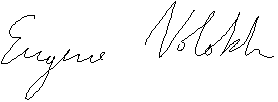 Eugene Volokh